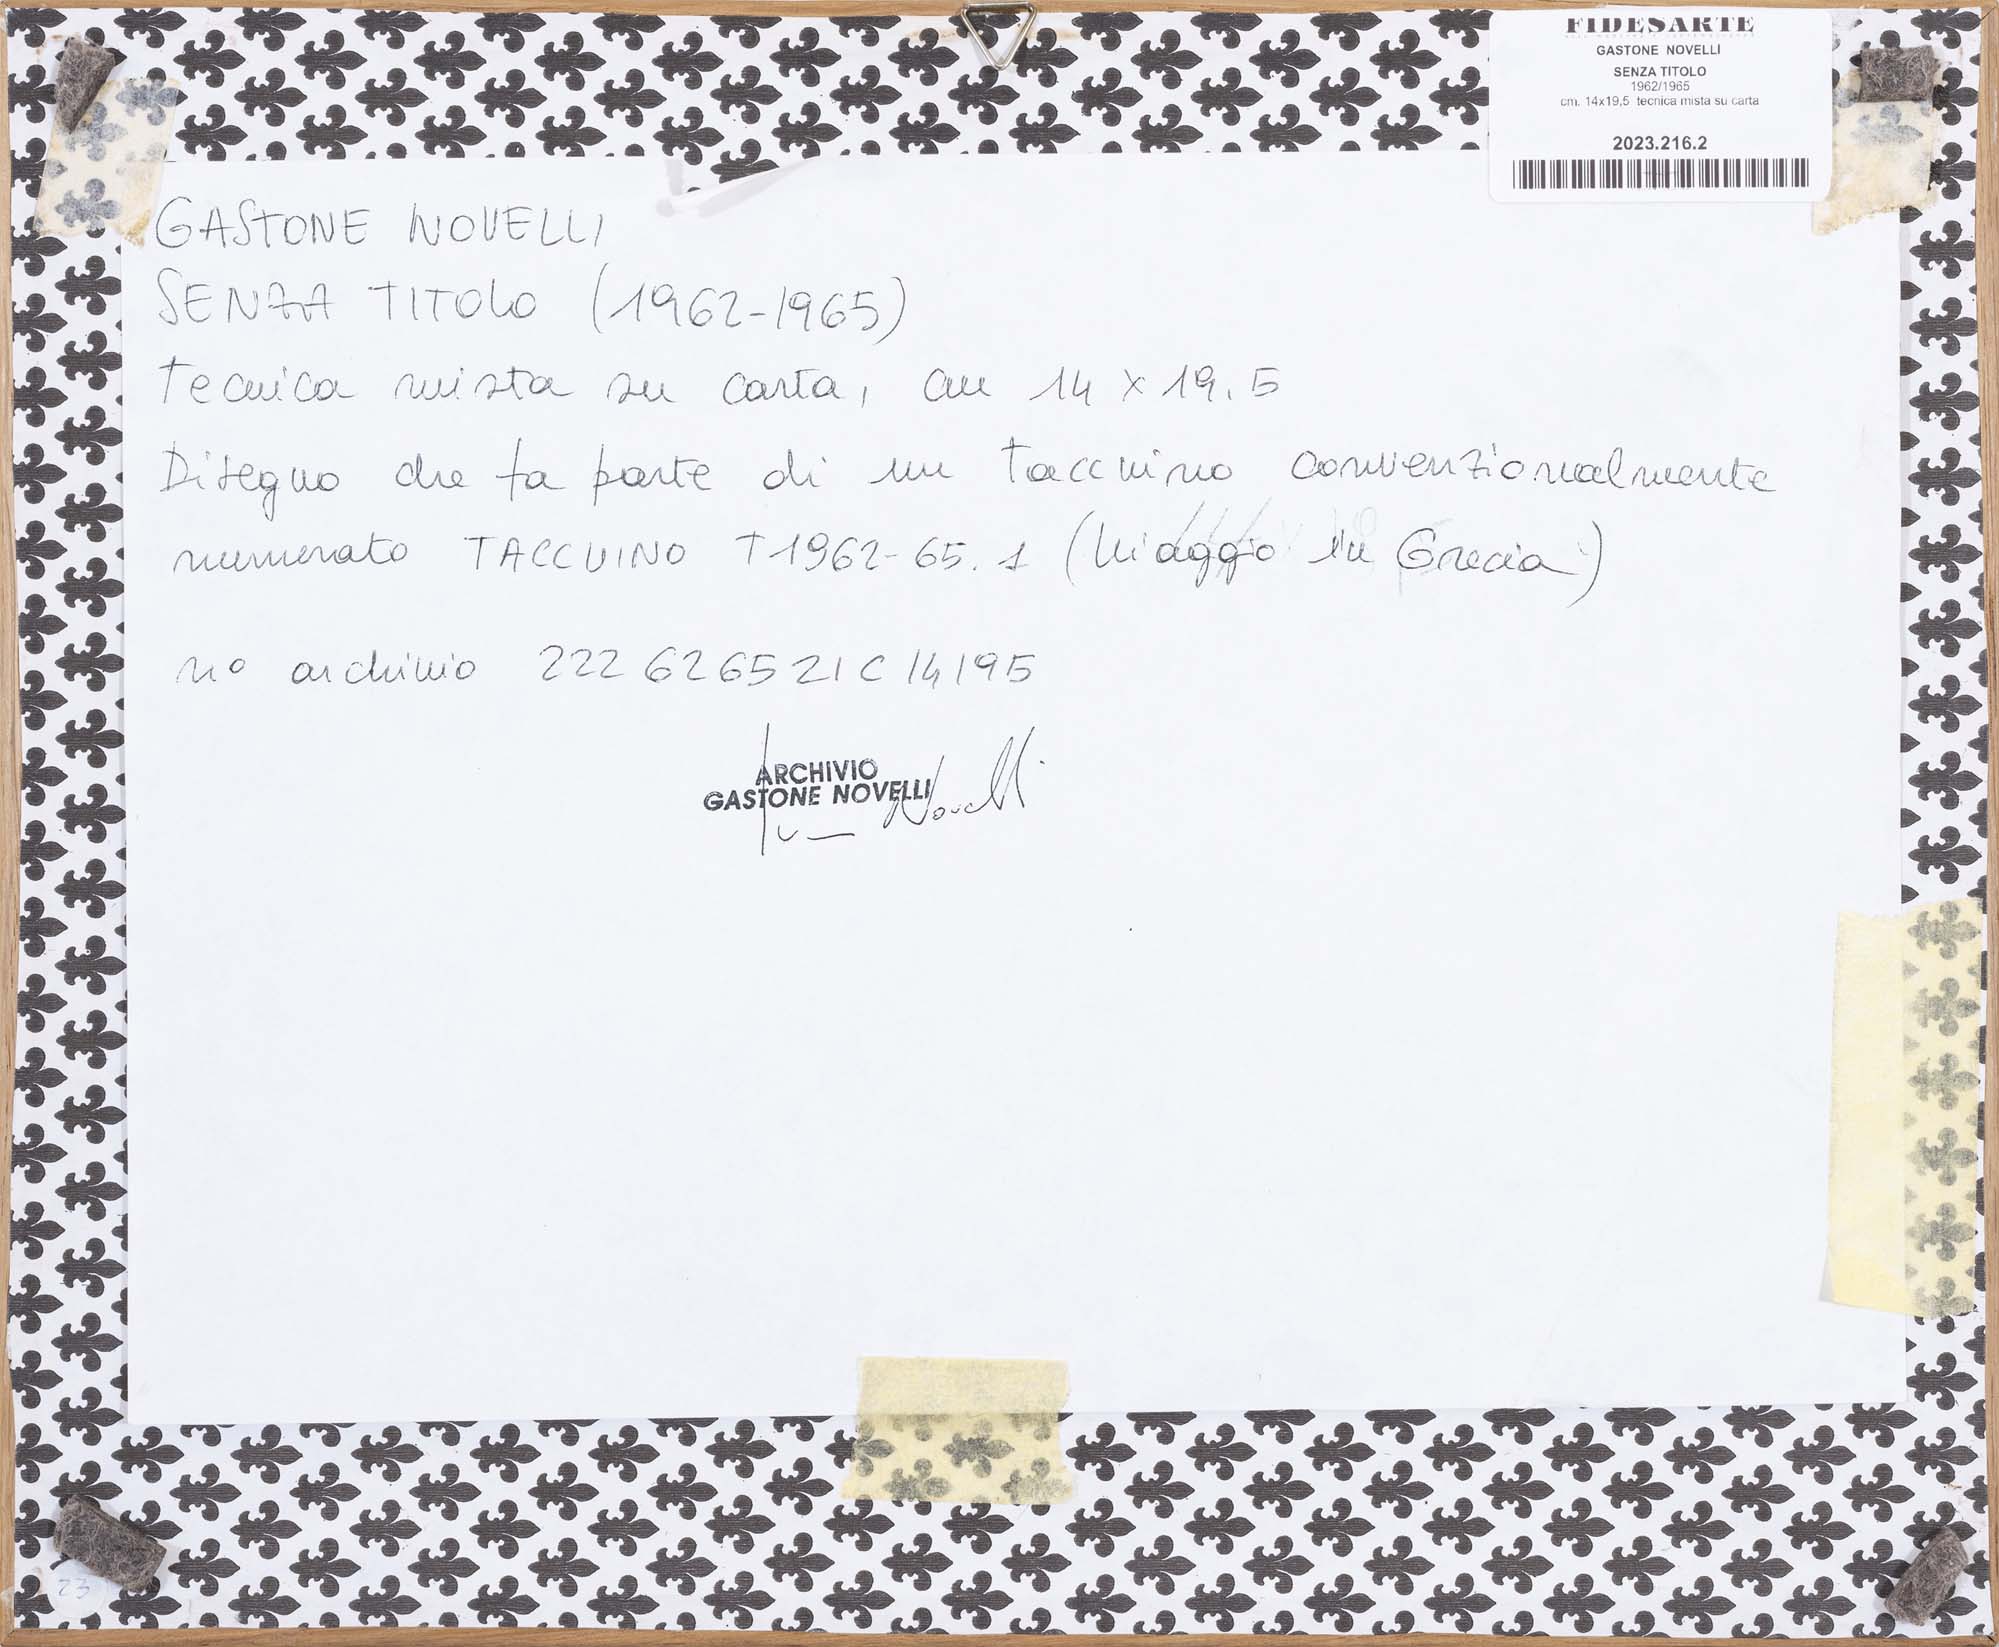 FIDESARTE
GASTONE NOVELLI
SENZA TITOLO
1962/1965
cm. 14x19,5 tecnica mista su carta
2023.216.2
GASTONE NOVELLI
SENZA TITOLO (1962-1965)
Tecnica mista su carta, cm 14 x 19.5
Disegno che fa parte di un taccuino convenzionalmente
numerato TACCUINO T1962-65.1 (Viaggio in Grecia)
n° archivio 222626521C14195
ARCHIVIO
GASTONE NOVELLI
Novelli
23